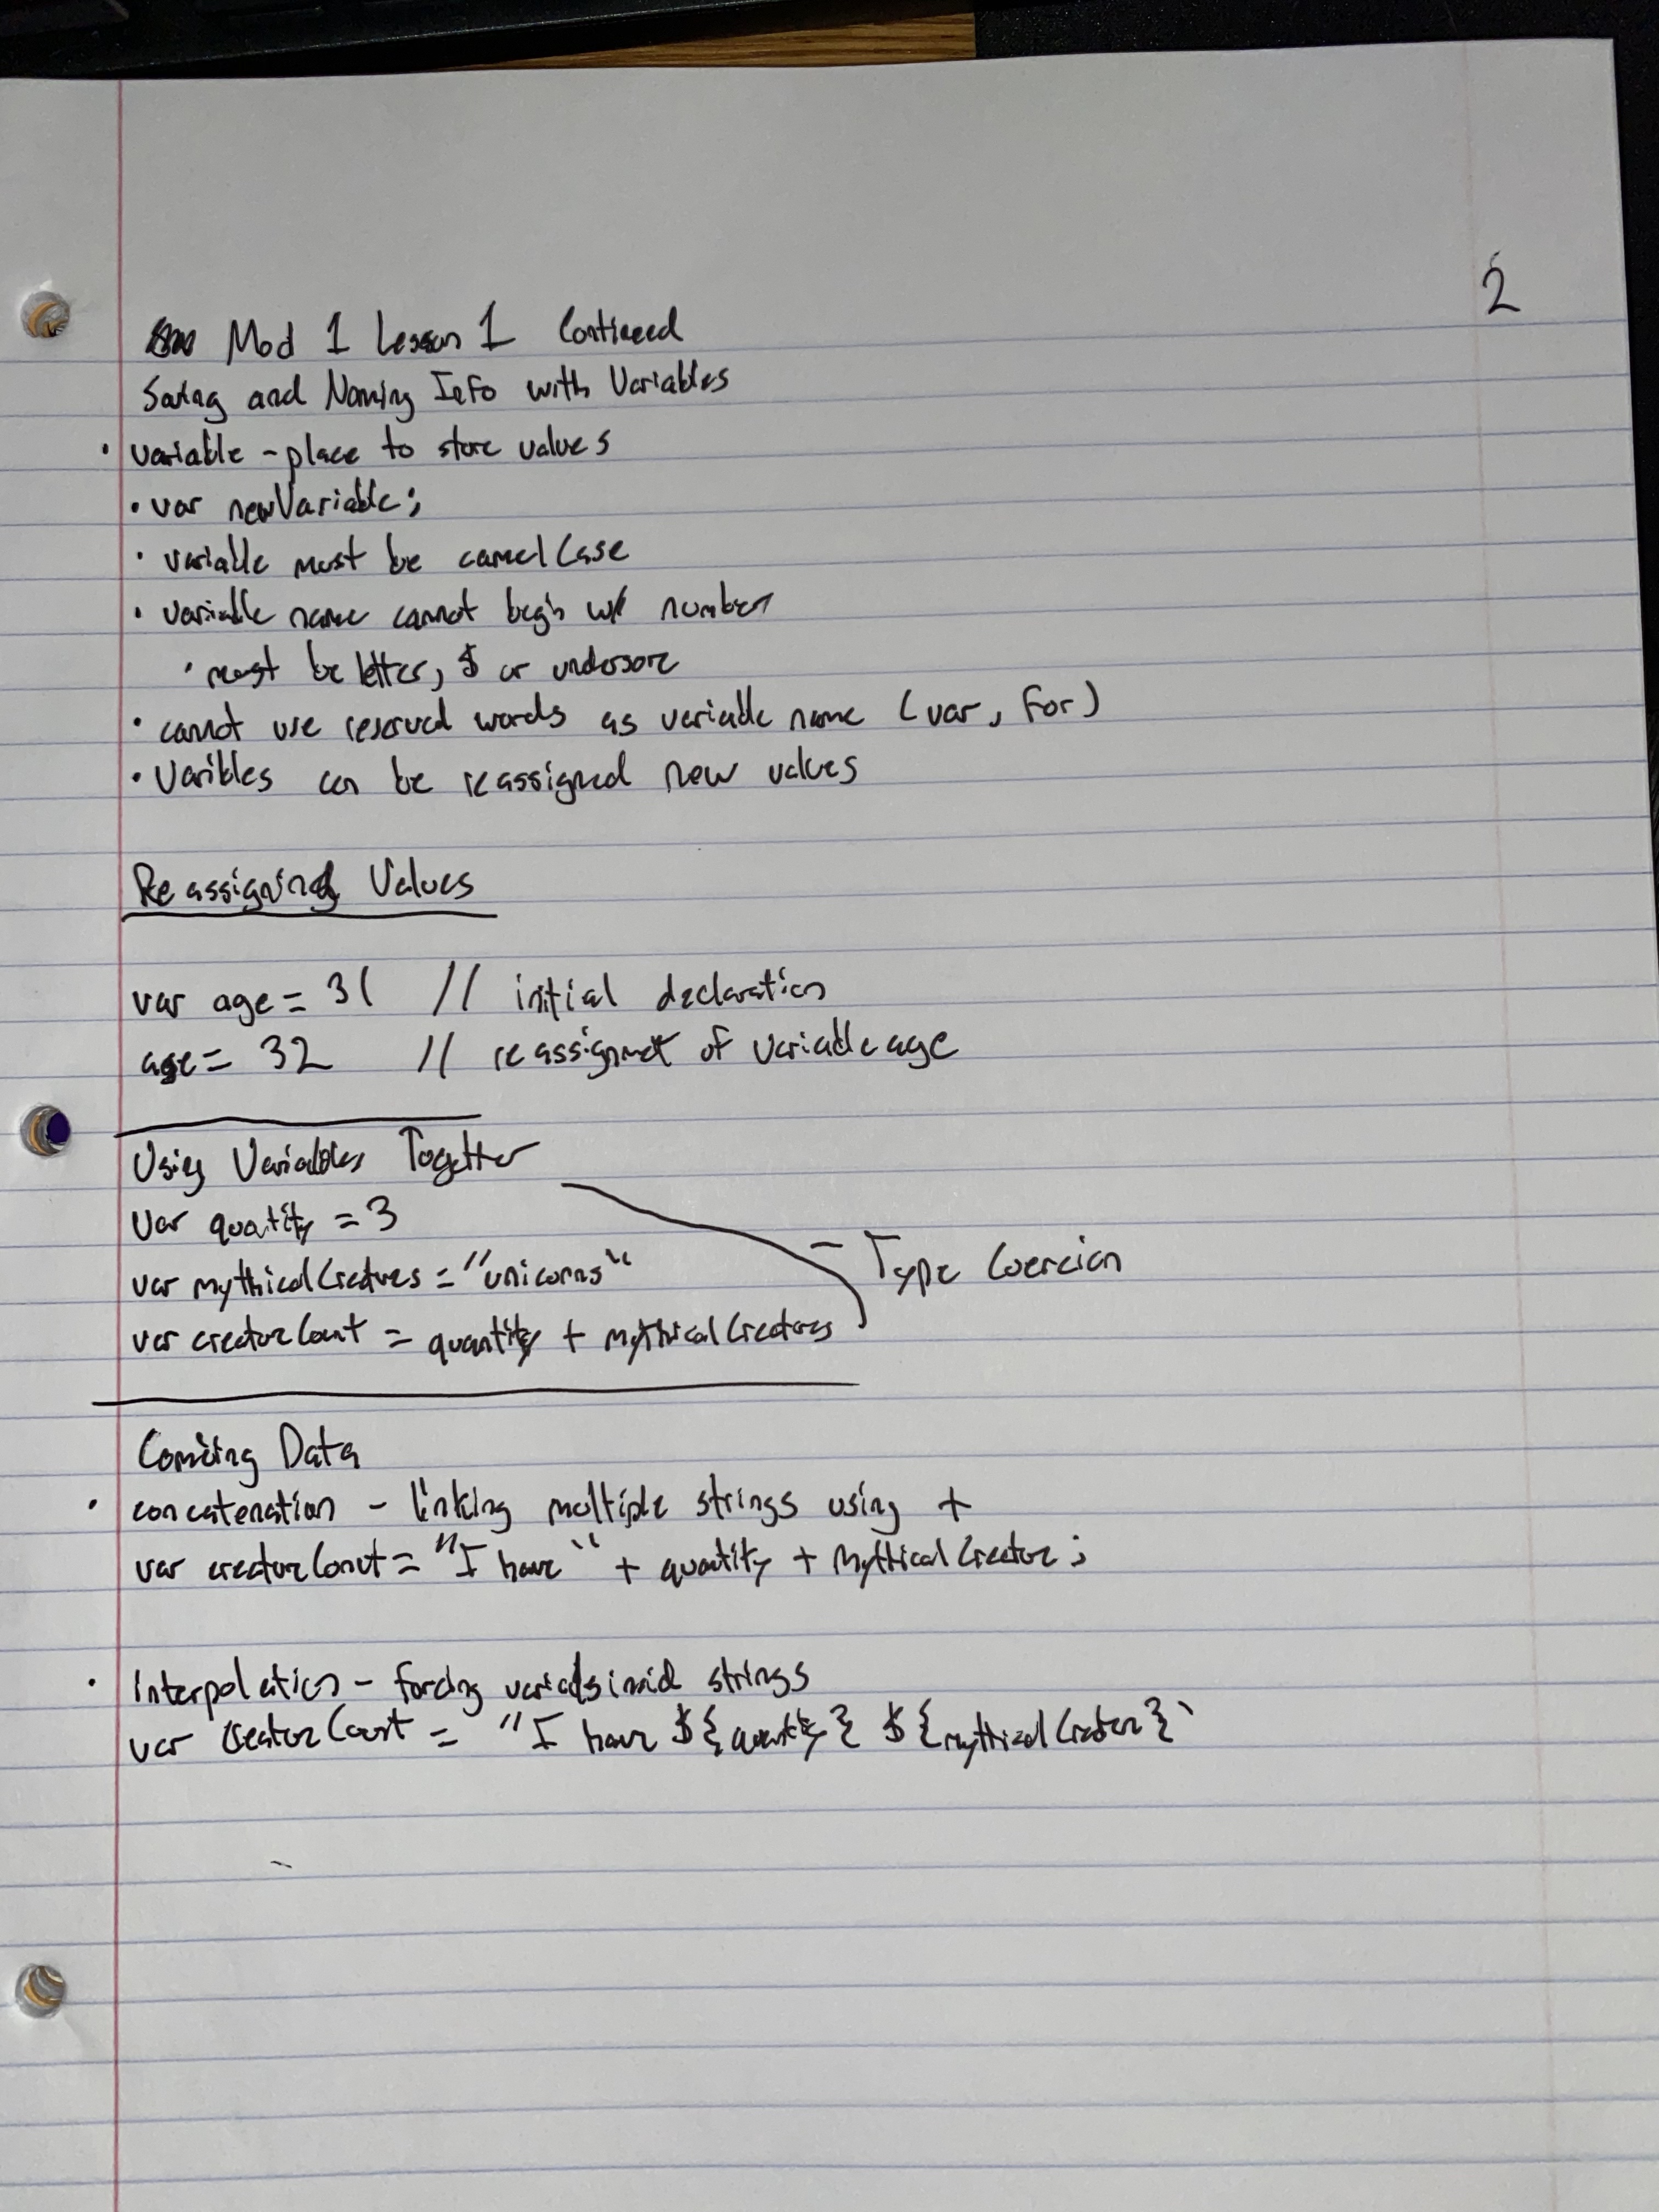 2
Mod 1 Lesson 1 Continued
Saving and Naming Info with Variables
• variable - place to store values
• var newVariable;
• variable must be camelCase
• variable name cannot begin w/ number
• must be letter, $ or undersore
• cannot use reserved words as variable name (var, for)
• Varibles can be reassigned new values
Reassigning Values
var age = 31 // initial declaration
age = 32 // reassignmet of variable age
Using Variables Together
var quantity = 3
var mythicalCreatures = "unicorns"
- Type Coercion
var creatorCount = quantity + mythicalCreatures
Combing Data
• concatenation - linking multiple strings using +
var creatorCount = "I have" + quantity + mythicalCreator;
• Interpolation - forcing strings
var creatorCount = "I have ${quantity} ${mythicalCreator}`